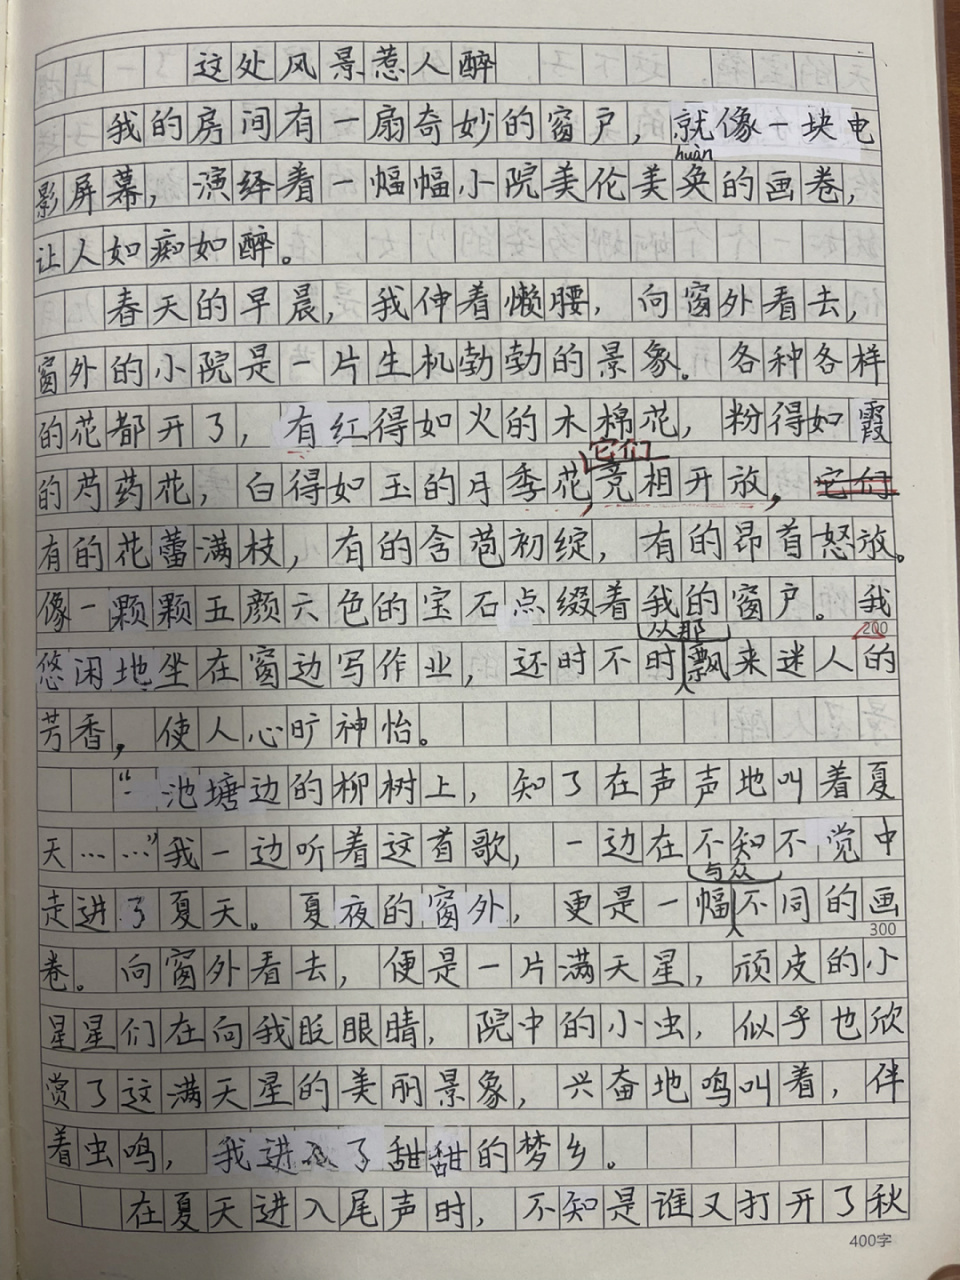 这处风景惹人醉
我的房间有一扇奇妙的窗户，就像一块电
huàn
影屏幕，演绎着一幅幅小院美伦美奂的画卷，
让人如痴如醉。
春天的早晨，我伸着懒腰，向窗外看去，
窗外的小院是一片生机勃勃的景象。各种各样
的花都开了，有红得如火的木棉花，粉得如霞
它们
的芍药花，白得如玉的月季花，竞相开放，它们
有的花蕾满枝，有的含苞初绽，有的昂首怒放。
像一颗颗五颜六色的宝石点缀着我的窗户。我
从那
200
悠闲地坐在窗边写作业，还时不时飘来迷人的
芳香，使人心旷神怡。
“池塘边的柳树上，知了在声声地叫着夏
天……”我一边听着这首歌，一边在不知不觉中
与众
走进了夏天。夏夜的窗外，更是一幅不同的画
300
卷。向窗外看去，便是一片满天星，顽皮的小
星星们在向我眨眼睛，院中的小虫，似乎也欣
赏了这满天星的美丽景象，兴奋地鸣叫着，伴
着虫鸣，我进入了甜甜的梦乡。
在夏天进入尾声时，不知是谁又打开了秋
400字